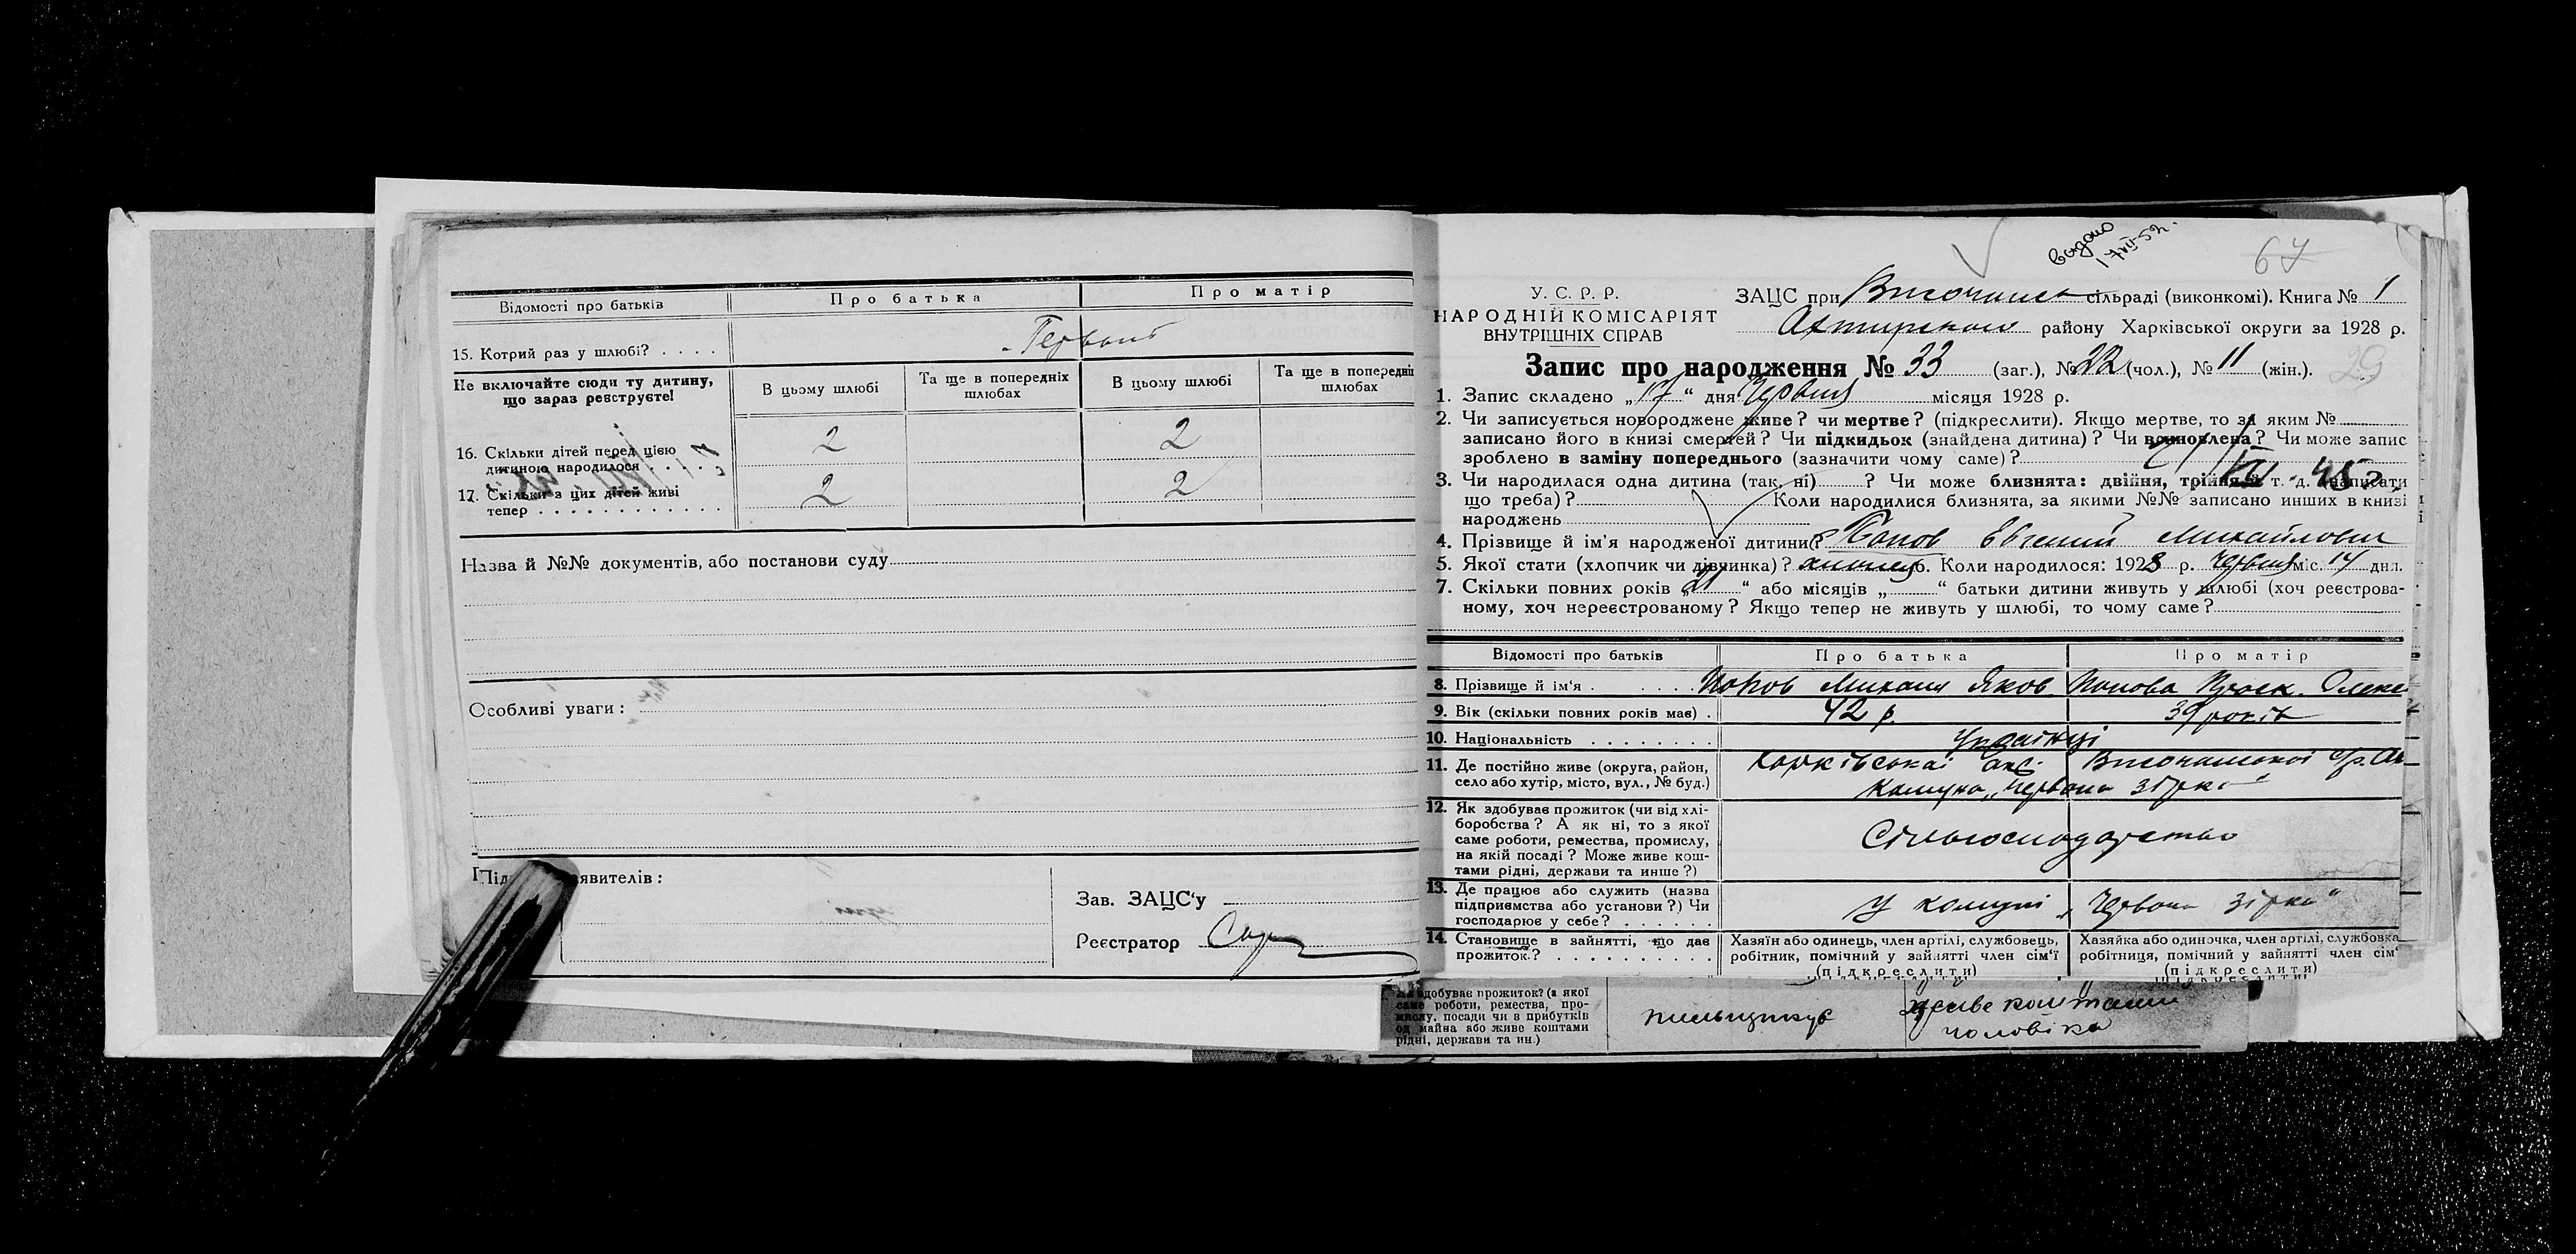 Відомості про батьків
Про батька
Про матір
15. Котрий раз у шлюбі? . . . .
Не включайте сюди ту дитину,
що зараз реєструєте!
В цьому шлюбі
Та ще в попередніх
шлюбах
В цьому шлюбі
Та ще в попередніх
шлюбах
16. Скільки дітей перед цією
дитиною народилося . . . .
2
2
17. Скільки з цих дітей живі
тепер . . . . . . . . . . . .
2
2
Назва й №№ документів, або постанови суду
Особливі уваги:
явителів:
Зав. ЗАЦС'у
Реєстратор
видано
67
У. С. Р. Р.
НАРОДНІЙ КОМІСАРІЯТ
ВНУТРІШНІХ СПРАВ
ЗАЦС при сільраді (виконкомі). Книга № 1
району Харківської округи за 1928 р.
Запис про народження № 33 (заг.), № 22 (чол.), № 11 (жін.).
29
1. Запис складено „17“ дня Червня місяця 1928 р.
2. Чи записується новороджене живе? чи мертве? (підкреслити). Якщо мертве, то за яким №
записано його в книзі смертей? Чи підкидьок (знайдена дитина)? Чи вановлена? Чи може запис
зроблено в заміну попереднього (зазначити чому саме)?
3. Чи народилася одна дитина (так, ні) ? Чи може близнята: двійня, трійня й т. д. (написати
що треба)? Коли народилися близнята, за якими №№ записано инших в книзі
народжень
4. Прізвище й ім'я народженої дитини? Попов Евгений Михайлович
5. Якої стати (хлопчик чи дівчинка)? хлопець 6. Коли народилося: 1928 р. Червня міс. 14 дня.
7. Скільки повних років „21“ або місяців „ “ батьки дитини живуть у шлюбі (хоч реєстрова-
ному, хоч нереєстрованому? Якщо тепер не живуть у шлюбі, то чому саме?
Відомості про батьків
Про батька
Про матір
8. Прізвище й ім'я . . . . . Попов Михаил Яков Попова Праск. Олекс
9. Вік (скільки повних років має) . 42 р. 39 років
10. Національність . . . . . . . . Українці
11. Де постійно живе (округа, район,
село або хутір, місто, вул., № буд.)
Харківської окр.
Комуна „Червона зірка“
12. Як здобуває прожиток (чи від хлі-
боробства? А як ні, то з якої
саме роботи, ремества, промислу,
на якій посаді? Може живе кош-
тами рідні, держави та инше?)
Сільгосподарство
13. Де працює або служить (назва
підприємства або установи?) Чи
господарює у себе? . . . . . .
У комуні „Червона зірка“
14. Становище в зайнятті, що дає
прожиток? . . . . . . . . . .
Хазяїн або одинець, член артілі, службовець,
робітник, помічний у зайнятті член сім'ї
(підкреслити)
Хазяйка або одиночка, член артілі, службовка
робітниця, помічний у зайнятті член сім'
(підкреслити)
здобуває прожиток? (з якої
саме роботи, ремества, про-
мислу, посади чи в прибутків
од майна або живе коштами
рідні, держави та ин.)
живе коштами
чоловіка